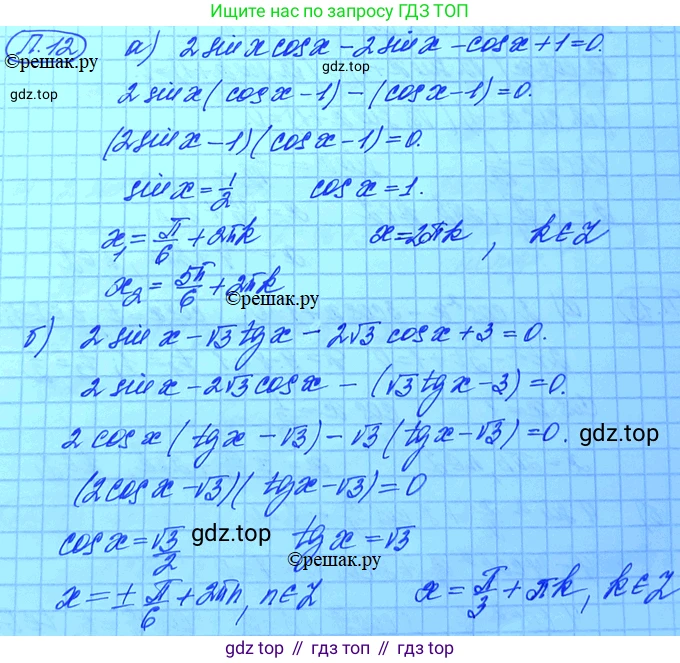 Ищите нас по запросу ГДЗ ТОП
П.12 а) 2 sin x cos x - 2 sin x - cos x + 1 = 0.
©решак.ру
gdz.top gdz.top
2 sin x ( cos x - 1) - (cos x - 1) = 0.
(2 sin x - 1)(cos x - 1) = 0.
sin x = 1/2 cos x = 1.
x₁ = π/6 + 2πk x = 2πk, k ∈ Z
x₂ = 5π/6 + 2πk
©решак.ру
б) 2 sin x - √3 tg x - 2√3 cos x + 3 = 0.
2 sin x - 2√3 cos x - (√3 tg x - 3) = 0.
2 cos x ( tg x - √3) - √3 ( tg x - √3) = 0.
gdz.top
(2 cos x - √3)( tg x - √3) = 0
cos x = √3/2 tg x = √3
gdz.top
©решак.ру
x = ± π/6 + 2πn, n ∈ Z x = π/3 + πk, k ∈ Z
gdz.top // gdz.top // gdz.top // gdz.top